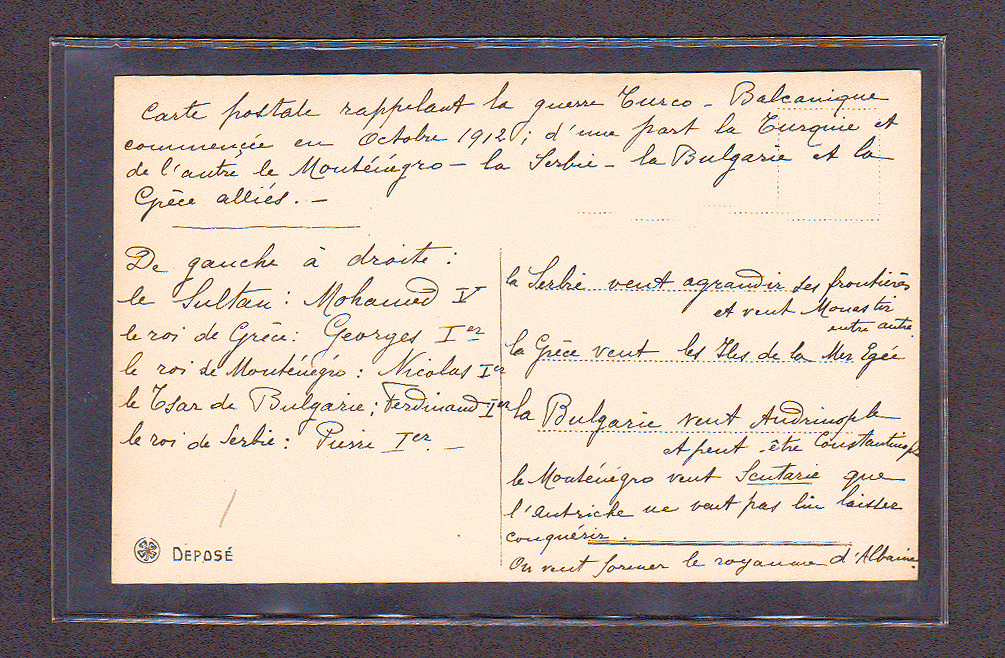 Carte postale rappelant la guerre Turco - Balcanique
commencée en Octobre 1912; d'une part la Turquie et
de l'autre le Monténégro - la Serbie - la Bulgarie et la
Grèce alliés. -
De gauche à droite :
le Sultan : Mohamed V
le roi de Grèce : Georges Ier
le roi de Monténégro : Nicolas Ier
le Tsar de Bulgarie ; Ferdinand Ier
le roi de Serbie : Pierre Ier. -
DEPOSÉ
la Serbie veut agrandir ses frontières
et veut Monastir
entre autre
la Grèce veut les Iles de la Mer Egée
la Bulgarie veut Andrinople
et peut-être Constantinople
le Monténégro veut Scutarie que
l'Autriche ne veut pas lui laisser
conquérir.
On veut former le royaume d'Albanie.